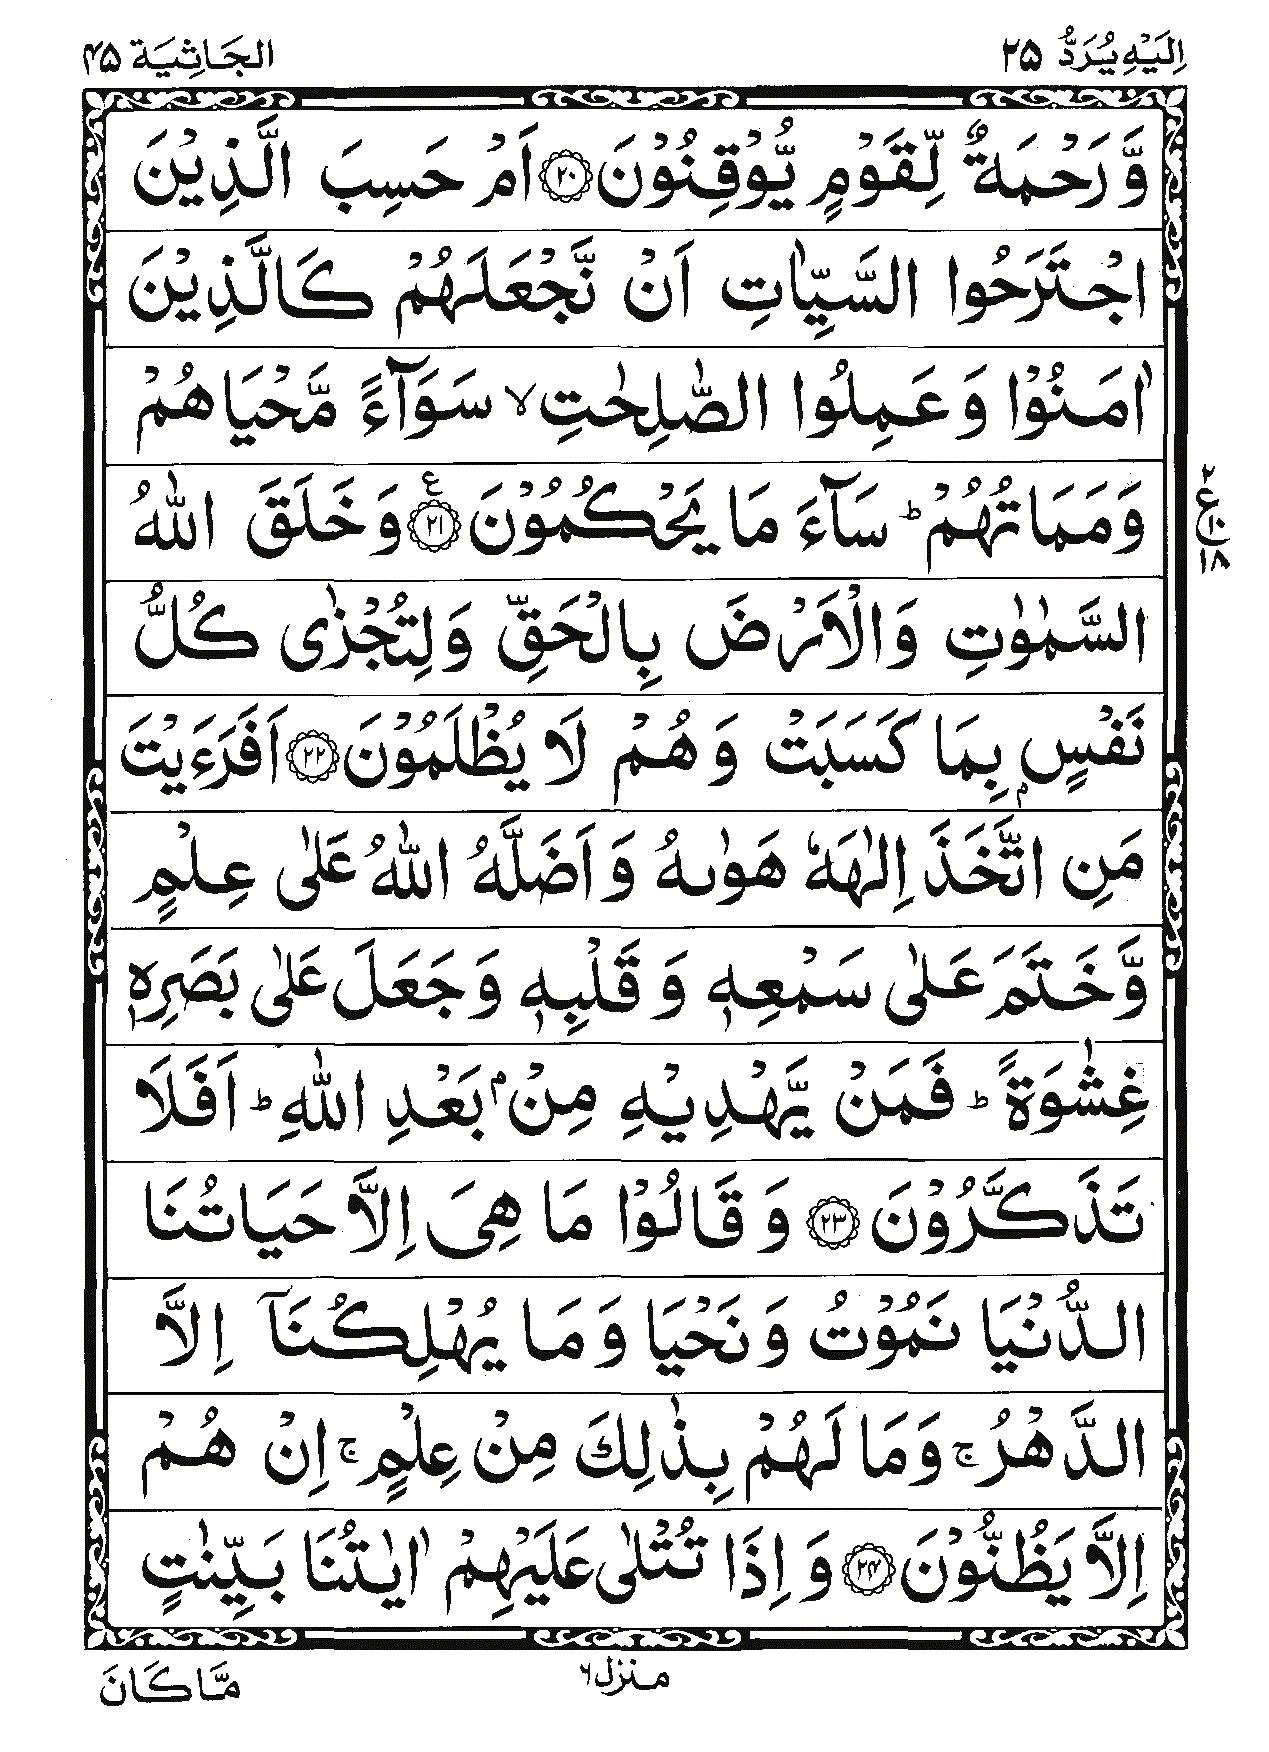 اِلَيْهِ يُرَدُّ ٢٥
الجَاثِيَة ٤٥
وَّ رَحْمَةٌ لِّقَوْمٍ يُّوْقِنُوْنَ ﴿٢٠﴾ اَمْ حَسِبَ الَّذِيْنَ
اجْتَرَحُوا السَّيِّاٰتِ اَنْ نَّجْعَلَهُمْ كَالَّذِيْنَ
اٰمَنُوْا وَ عَمِلُوا الصّٰلِحٰتِ ۙ سَوَآءً مَّحْيَاهُمْ
وَمَمَاتُهُمْ ؕ سَآءَ مَا يَحْكُمُوْنَ ﴿٢١﴾ ع وَ خَلَقَ اللّٰهُ
٢
ع
١٠
١٨
السَّمٰوٰتِ وَالْاَرْضَ بِالْحَقِّ وَلِتُجْزٰى كُلُّ
نَفْسٍۭ بِمَا كَسَبَتْ وَ هُمْ لَا يُظْلَمُوْنَ ﴿٢٢﴾ اَفَرَءَيْتَ
مَنِ اتَّخَذَ اِلٰهَهٗ هَوٰىهُ وَ اَضَلَّهُ اللّٰهُ عَلٰى عِلْمٍ
وَّ خَتَمَ عَلٰى سَمْعِهٖ وَ قَلْبِهٖ وَ جَعَلَ عَلٰى بَصَرِهٖ
غِشٰوَةً ؕ فَمَنْ يَّهْدِيْهِ مِنْۢ بَعْدِ اللّٰهِ ؕ اَفَلَا
تَذَكَّرُوْنَ ﴿٢٣﴾ وَ قَالُوْا مَا هِىَ اِلَّا حَيَاتُنَا
الدُّنْيَا نَمُوْتُ وَ نَحْيَا وَ مَا يُهْلِكُنَاۤ اِلَّا
الدَّهْرُ ۚ وَمَا لَهُمْ بِذٰلِكَ مِنْ عِلْمٍ ۚ اِنْ هُمْ
اِلَّا يَظُنُّوْنَ ﴿٢٤﴾ وَ اِذَا تُتْلٰى عَلَيْهِمْ اٰيٰتُنَا بَيِّنٰتٍ
منزل ٦
مَّا كَانَ